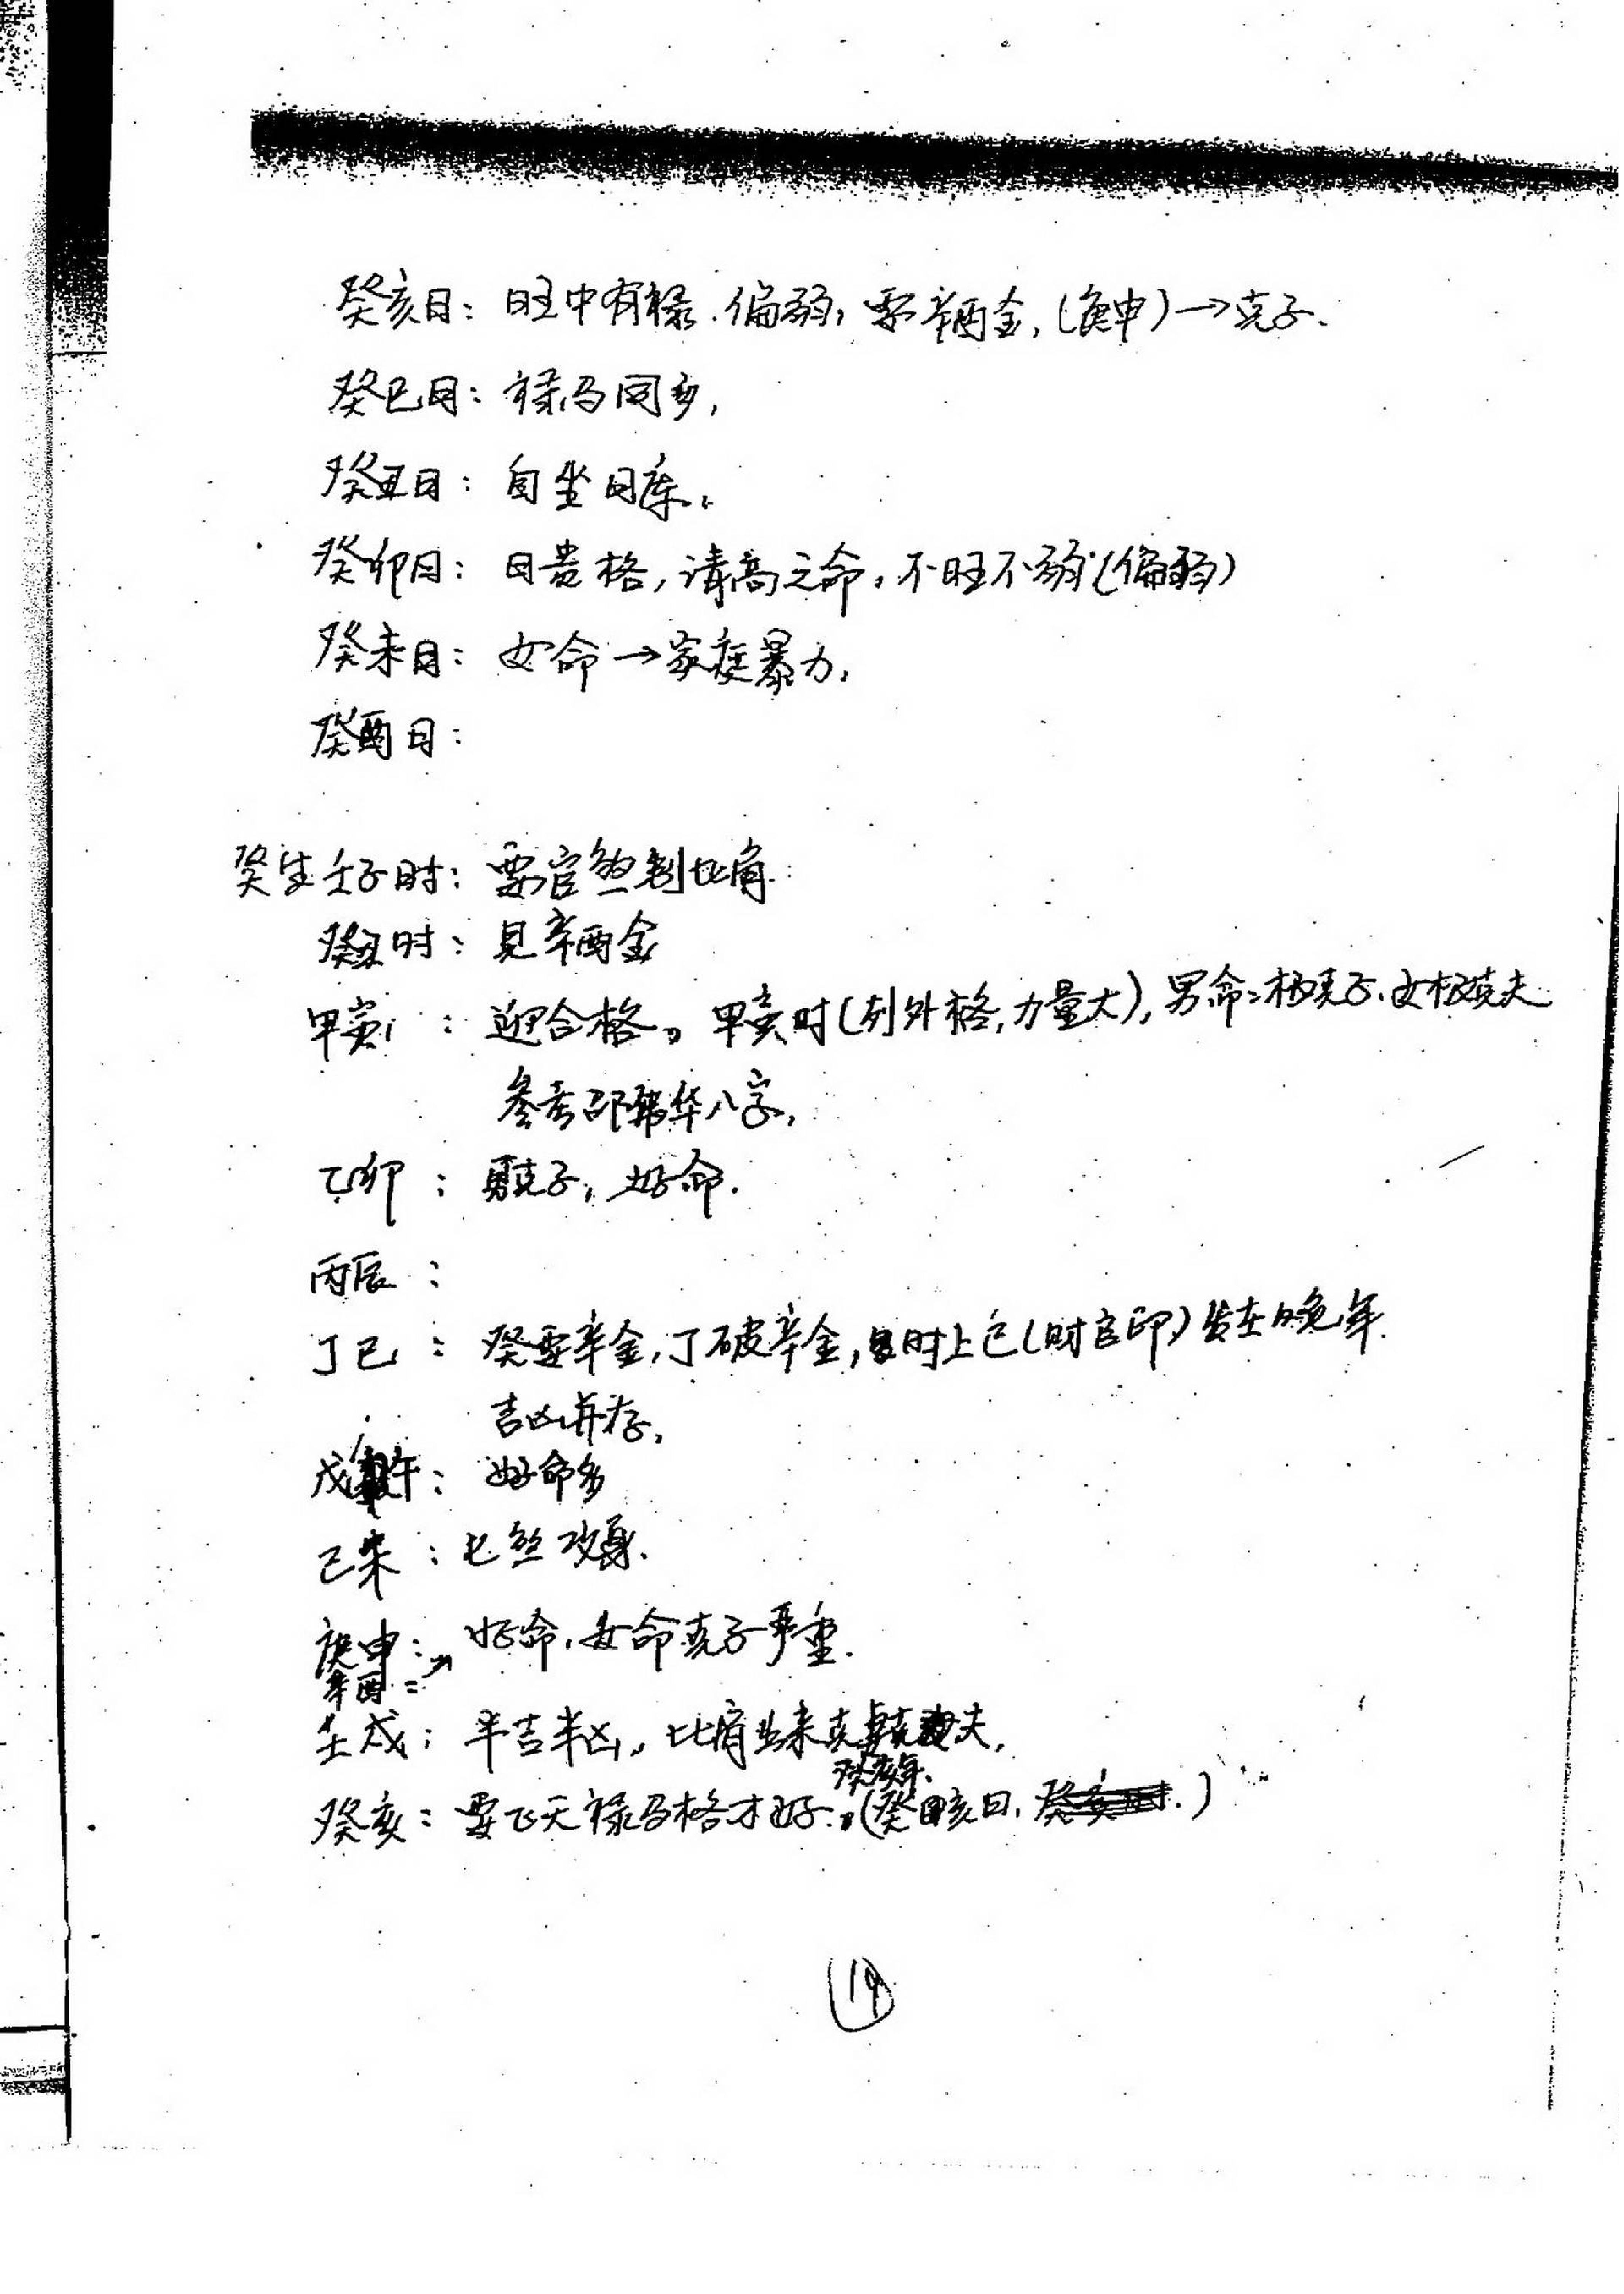 癸亥日：旺中有禄.偏弱，要辛酉金，(庚申)→克子.
癸巳日：禄马同乡，
癸丑日：自坐日库。
癸卯日：日贵格，清高之命，不旺不弱(偏弱)
癸未日：女命→家庭暴力，
癸酉日：
癸生壬子时：要官煞制比肩
癸丑时：见辛酉金
甲寅：迎合格。甲寅时(列外格,力量大)，男命：极克子、女极克夫
参考邵伟华八字，
乙卯：男克子，好命.
丙辰：
丁巳：癸要辛金,丁破辛金，时上巳(财官印)发在晚年.
吉凶并存，
戊午：好命多
己未：七煞攻身、
庚申：好命，女命克子严重.
辛酉：
壬戌：半吉半凶。比肩 来克 夫，
癸亥年、
癸亥：要飞天禄马格才好。(癸亥日， )
19